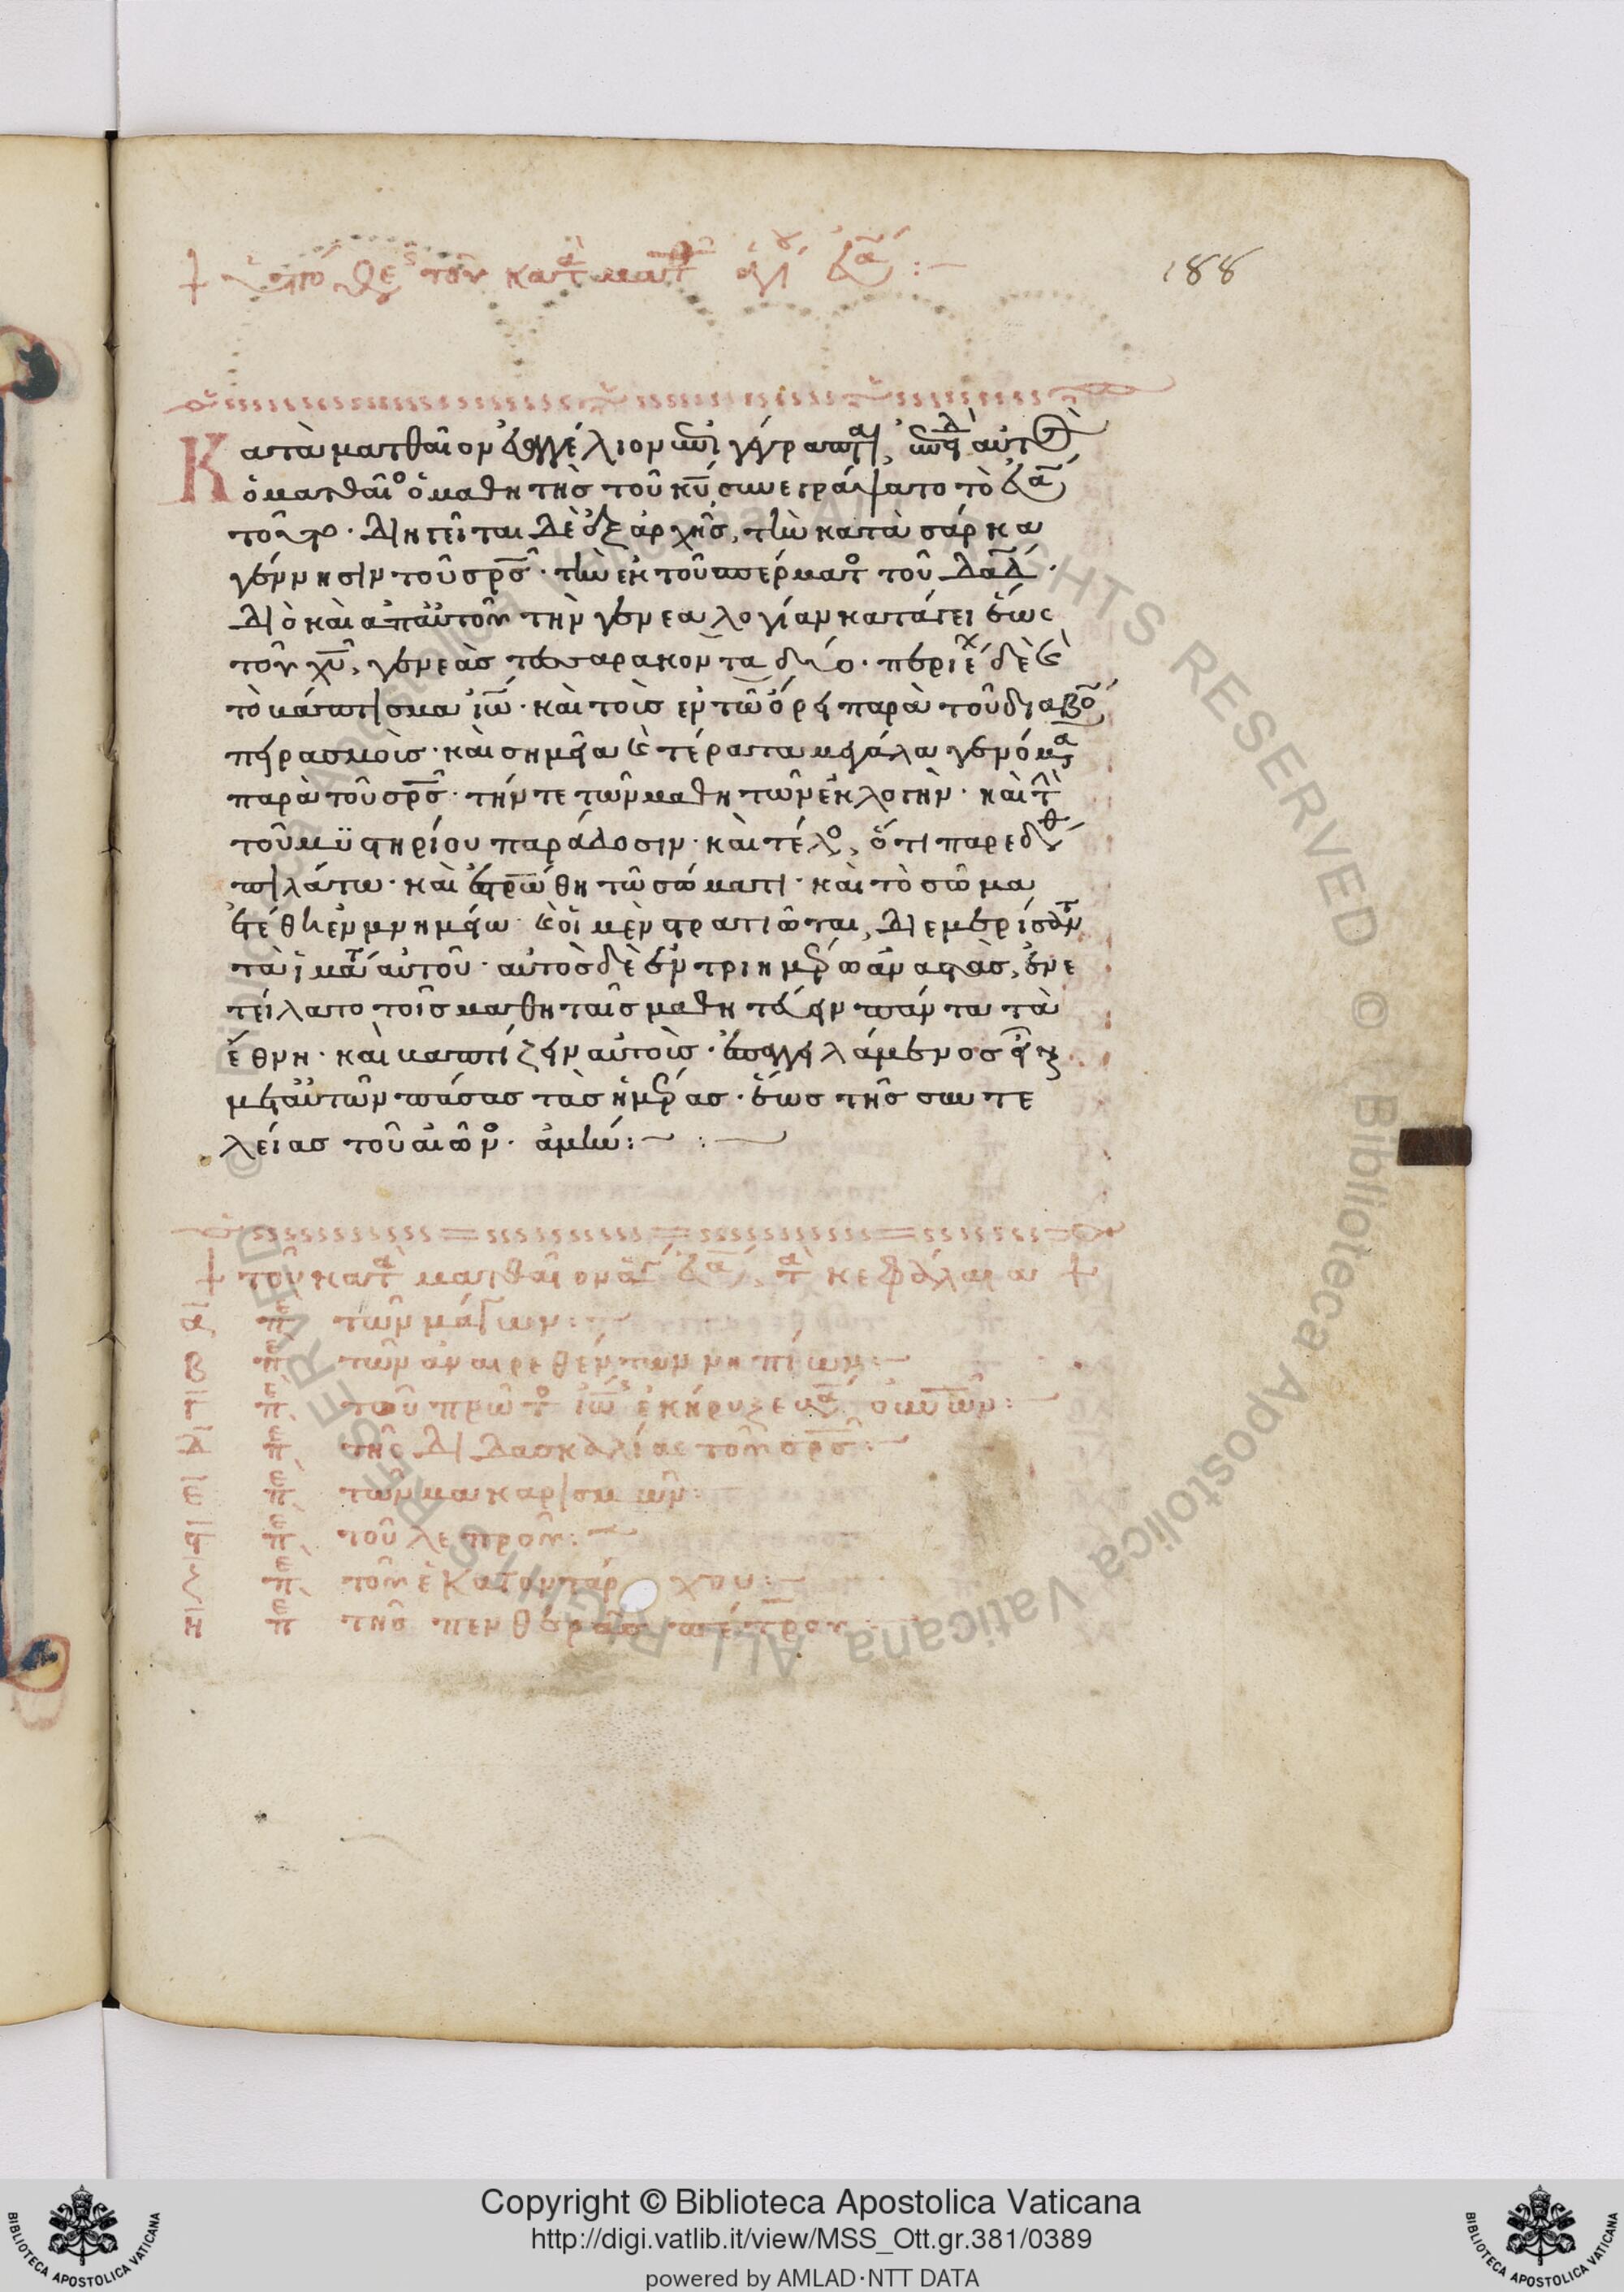 + ὑπόθεσ τοῦ κατὰ ματ ἁγί ευα :—
188
Κατὰ ματθαῖον εὐαγγέλιον ἐπιγέγραπται, ἐπειδὴ αὐτὸς
ὁ ματθαῖος ὁ μαθητὴς τοῦ κυ συνεγράψατο τὸ ευα
τοῦτο. διηγεῖται δὲ ἐξ ἀρχῆς, τὴν κατὰ σάρκα
γέννησιν τοῦ σρς. τὴν ἐκ τοῦ σπέρματος τοῦ δαδ.
διὸ καὶ ἀπ αὐτοῦ τὴν γενεαλογίαν κατάγει ἕως
τοῦ χυ, γενεὰς τεσσαράκοντα δύο. περιέχ δὲ καὶ
τὸ βάπτισμα ἰω. καὶ τοὺς ἐν τῶ ὄρει παρὰ τοῦ διαβό
πειρασμοὺς. καὶ σημεῖα καὶ τέρατα μεγάλα γενόμενα
παρὰ τοῦ σρς. τήν τε τῶν μαθητῶν ἐκλογὴν. καὶ τὴν
τοῦ μυστηρίου παράδοσιν. καὶ τέλος, ὅτι παρεδόθ
πιλάτω. καὶ ἐστρώθη τῶ σώματι. καὶ τὸ σῶμα
ἐτέθη ἐν μνημείω. καὶ οἱ μὲν στρατιῶται, διεμερίσαντ
τὰ ἱμάτια αὐτοῦ. αὐτὸς δὲ ἐν τριημέρω ἀναστὰς, ἐνε
τείλατο τοῖς μαθηταῖς μαθητεύειν πάντα τὰ
ἔθνη. καὶ βαπτίζειν αὐτοὺς. ἐπαγγειλάμενος εἶναι
μετ αὐτῶν πάσας τὰς ἡμέρας. ἕως τῆς συντε
λείας τοῦ αἰῶνος. ἀμήν :— :—
+ τοῦ κατὰ ματθαῖον ἁγ ευα, τὰ κεφάλαια +
α περ τῶν μάγων :—
β περ τῶν ἀναιρεθέντων νηπίων :—
γ περ τοῦ πρῶτος ἰω ἐκήρυξε
δ περ τῆς διδασκαλίας τοῦ σρς :—
ε περ τῶν μακαρισμῶν :
ϛ περ τοῦ λεπροῦ :—
ζ περ τοῦ ἑκατοντάρχου :—
η περ τῆς πενθερᾶς πέτρου :—
Copyright © Biblioteca Apostolica Vaticana
http://digi.vatlib.it/view/MSS_Ott.gr.381/0389
powered by AMLAD·NTT DATA
BIBLIOTECA APOSTOLICA VATICANA
BIBLIOTECA APOSTOLICA VATICANA
© Biblioteca Apostolica Vaticana ALL RIGHTS RESERVED © Biblioteca Apostolica Vaticana ALL RIGHTS RESERVED